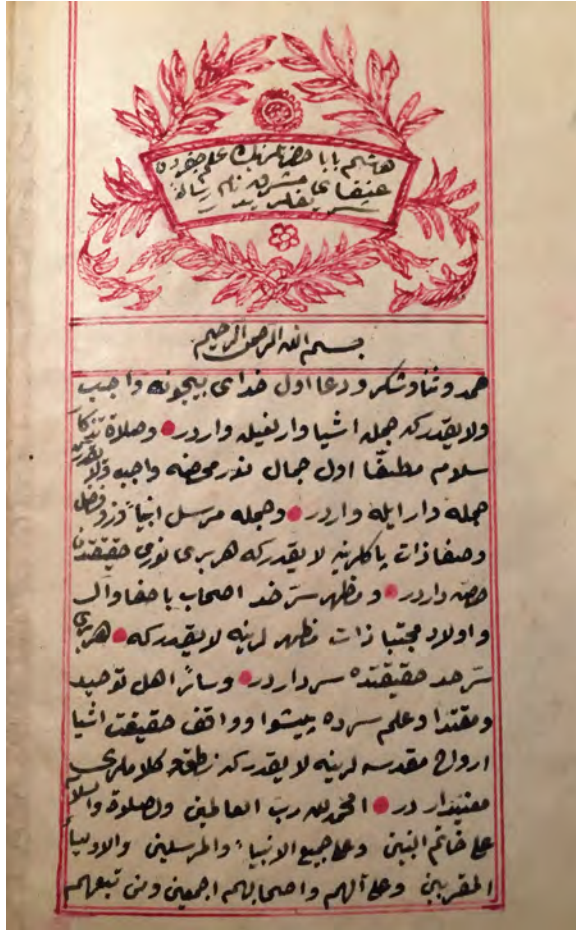 هاشم بابا حضرتلرينك علم جفردن
عنقاى مشرق نام رساله
شريفلريدر
بسم الله الرحمن الرحيم
حمد و ثنا و شكر و دعا اول خداى بيچونه واجب
ولايقدركه جمله اشيا وارلغيله واردر وصلاة
سلام مطلقا اول جمال نور محضه واجب ولايقدر
جمله دار ايله واردر وجمله مرسل انبيا
وصفا ذات پاكلرينه لايقدركه هربرى نورى حقيقتدن
حصه داردر ومظهر سر خدا اصحاب باصفا وآل
و اولاد مجتبا ذات مظهرلرينه لايقدركه هربرى
سر حد حقيقتده سرداردر وسائر اهل توحيد
ومقتدا وعلم سرده پيشوا وواقف حقيقت اشيا
ارواح مقدسه لرينه لايقدركه نطق وكلاملرى
معنيدار در الحمد لله رب العالمين والصلوة والسلام
على خاتم النبين وعلى جميع الانبياء والمرسلين والاولياء
المقربين وعلى آلهم واصحابهم اجمعين ومن تبعهم